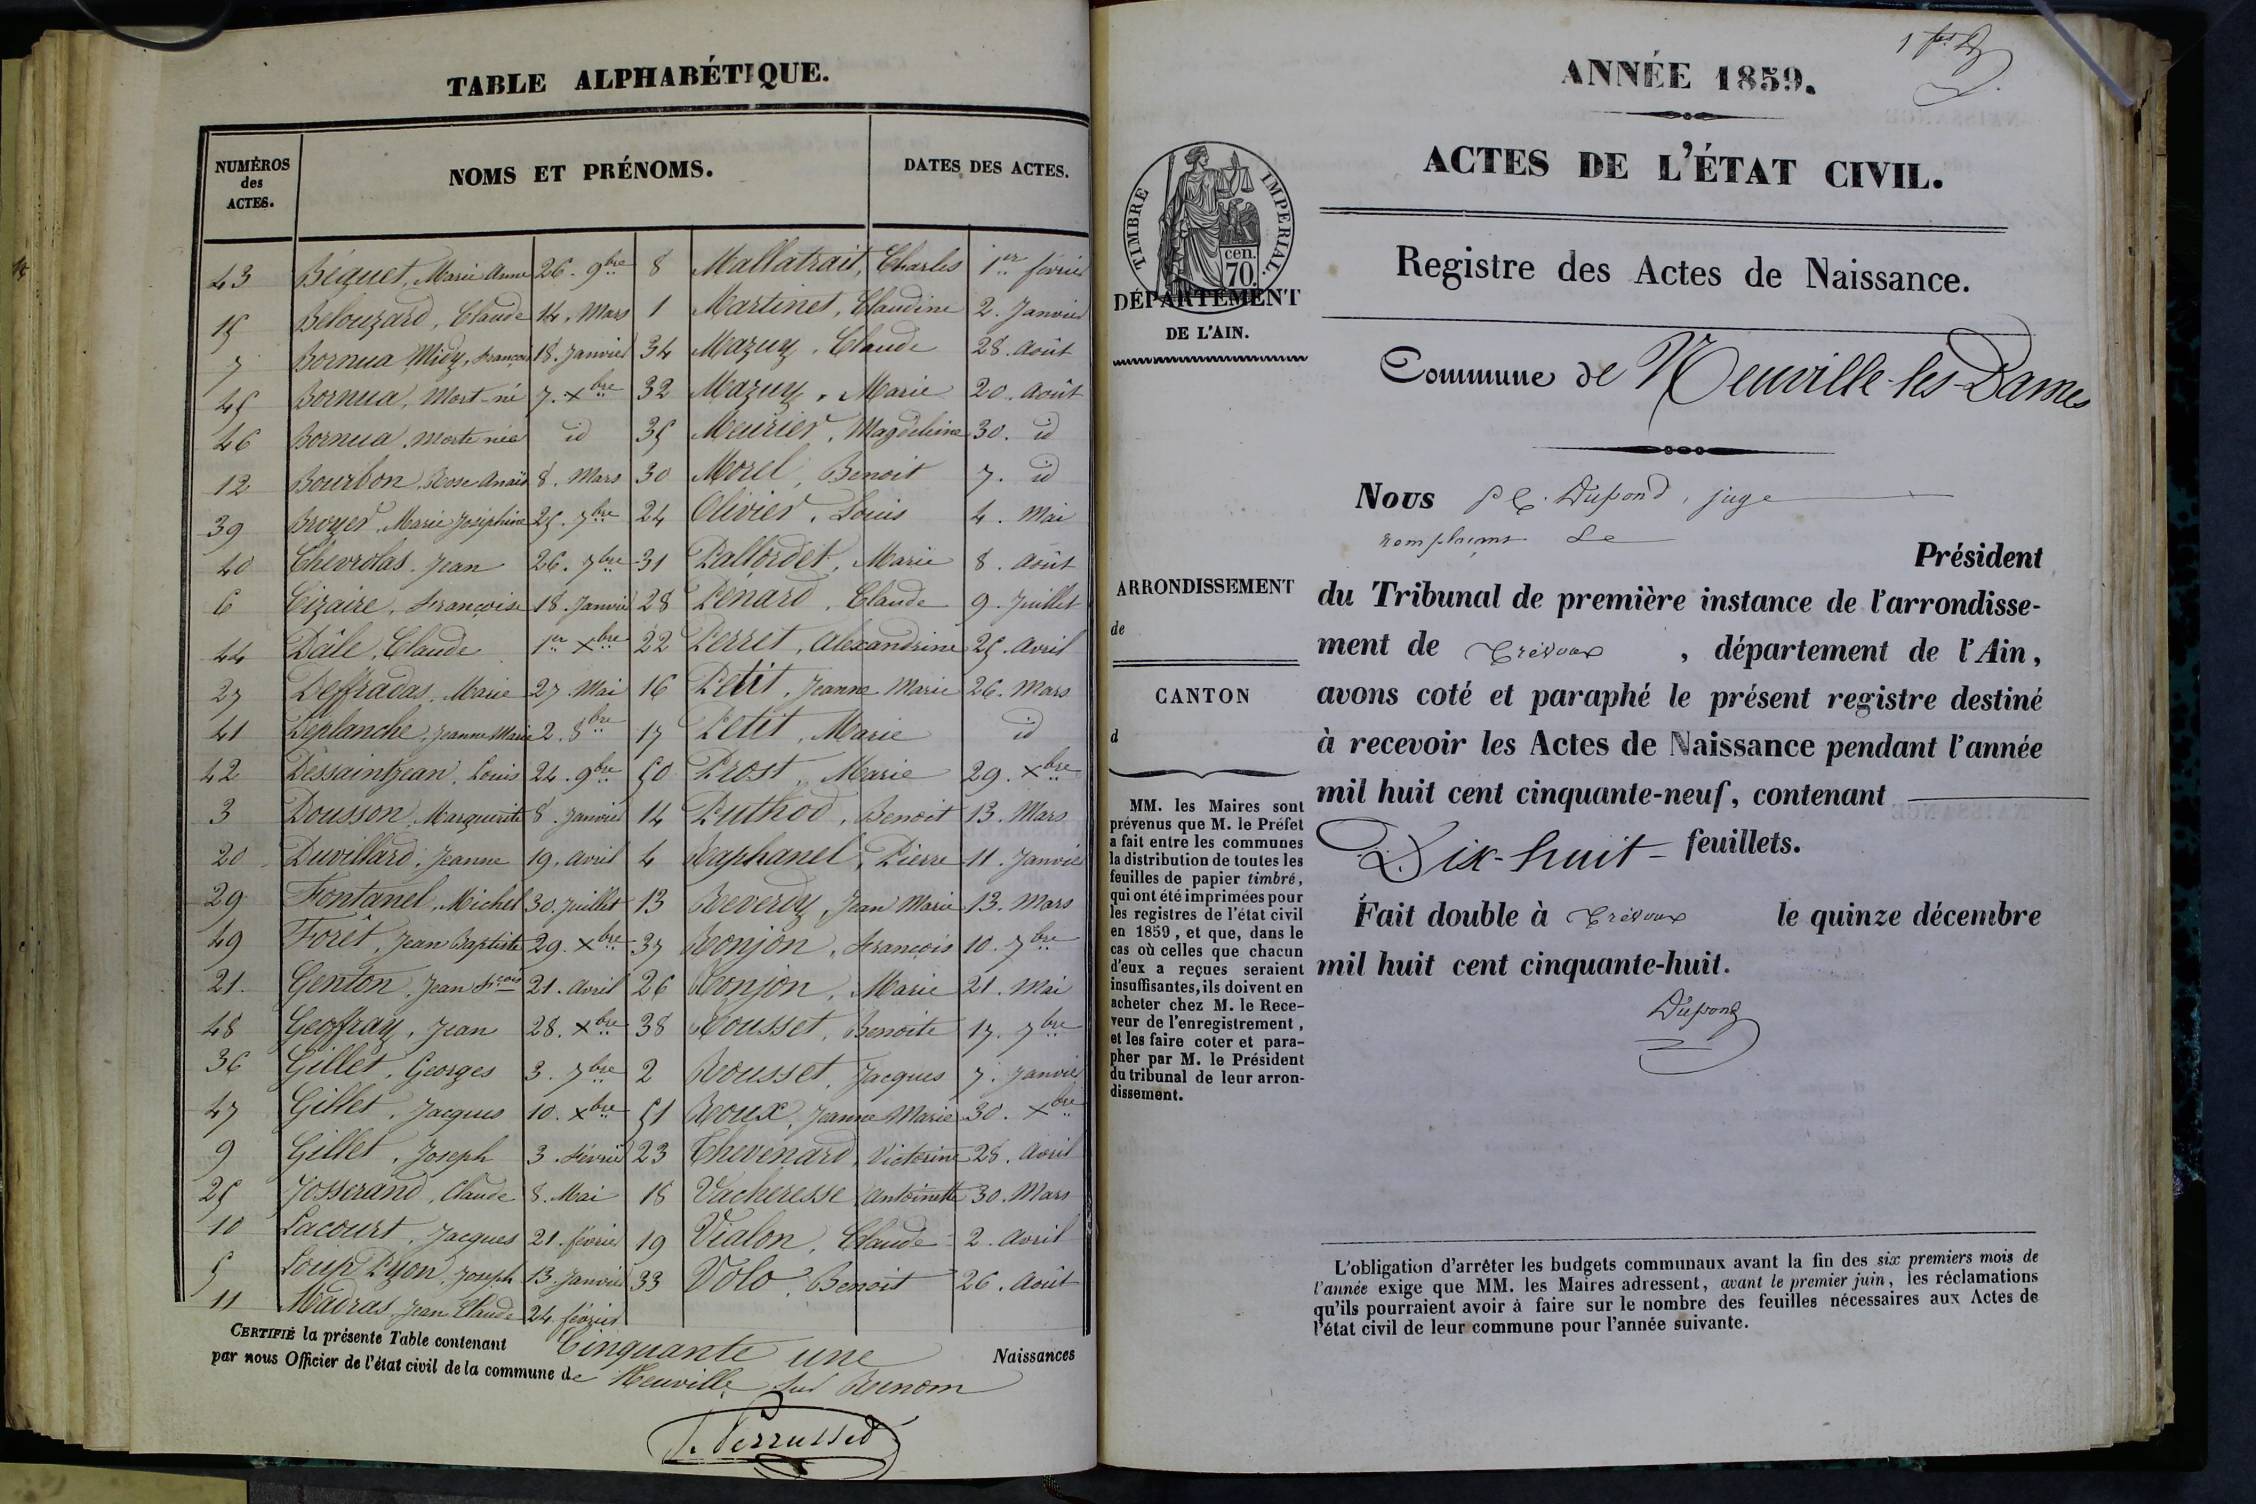 TABLE ALPHABÉTIQUE.
NUMÉROS des ACTES.
NOMS ET PRÉNOMS.
DATES DES ACTES.
43 Béguet, Marie Anne 26. 9bre 8 Mallatrait, Charles 1er février
15 Belouzard, Claude 14. Mars 1 Martinet, Claudine 2. Janvier
7 Bornua Midy, François 18. Janvier 34 Mazuy, Claude 28. août
45 Bornua, Mort-né 7. Xbre 32 Mazuy, Marie 20. août
46 Bornua, morte née id 35 Meurier, Magdeleine 30. id
12 Bourbon, Rose Anaïs 8. Mars 30 Morel, Benoit 7. id
39 Broyer, Marie Joséphine 25. 7bre 24 Olivier, Louis 4. Mai
40 Chevrolas, Jean 26. 7bre 31 Pallordet, Marie 8. août
6 Cizaire, Françoise 18. Janvier 28 Pénard, Claude 9. Juillet
44 Dâle, Claude 1er Xbre 22 Perret, Alexandrine 25. avril
27 Deffradas, Marie 27. Mai 16 Petit, Jeanne Marie 26. Mars
41 Deplanche, Jeanne Marie 2. 8bre 17 Petit, Marie id
42 Dessaintjean, Louis 24. 9bre 50 Prost, Marie 29. Xbre
3 Dousson, Marguerite 8. Janvier 14 Puthod, Benoit 13. Mars
20 Duvillard, Jeanne 19. avril 4 Raphanel, Pierre 11. Janvier
29 Fontanel, Michel 30. Juillet 13 Reverdy, Jean Marie 13. Mars
49 Forêt, Jean Baptiste 29. Xbre 37 Ronjon, François 10. 7bre
21. Genton, Jean Fçois 21. avril 26 Ronjon, Marie 21. Mai
48 Geoffray, Jean 28. Xbre 38 Rousset, Benoite 17. 7bre
36 Gillet, Georges 3. 7bre 2 Rousset, Jacques 7. Janvier
47 Gillet, Jacques 10. Xbre 51 Roux, Jeanne Marie 30. Xbre
9 Gillet, Joseph 3. Février 23 Thevenard, Victorine 28. Avril
25 Josserand, Claude 8. Mai 18 Vacheresse, Antoinette 30. Mars
10 Lacourt, Jacques 21. février 19 Vialon, Claude 2. Avril
5 Loup Pyon, Joseph 13. Janvier 33 Volo, Benoit 26. Août
11 Madras, Jean Claude 24. février
CERTIFIÉ la présente Table contenant Cinquante une Naissances
par nous Officier de l'état civil de la commune de Neuville sur Renom
J. Perrussed
ANNÉE 1859.
ACTES DE L'ÉTAT CIVIL.
TIMBRE IMPERIAL.
cen. 70.
DÉPARTEMENT
DE L'AIN.
Registre des Actes de Naissance.
Commune de Neuville-les-Dames
Nous Dupond, juge
remplaçant Le
Président
ARRONDISSEMENT
de
CANTON
d
du Tribunal de première instance de l'arrondisse-
ment de Trévoux, département de l'Ain,
avons coté et paraphé le présent registre destiné
à recevoir les Actes de Naissance pendant l'année
mil huit cent cinquante-neuf, contenant
Dix-huit feuillets.
Fait double à Trévoux le quinze décembre
mil huit cent cinquante-huit.
Dupond
MM. les Maires sont
prévenus que M. le Préfet
a fait entre les communes
la distribution de toutes les
feuilles de papier timbré,
qui ont été imprimées pour
les registres de l'état civil
en 1859, et que, dans le
cas où celles que chacun
d'eux a reçues seraient
insuffisantes, ils doivent en
acheter chez M. le Rece-
veur de l'enregistrement,
et les faire coter et para-
pher par M. le Président
du tribunal de leur arron-
dissement.
L'obligation d'arrêter les budgets communaux avant la fin des six premiers mois de
l'année exige que MM. les Maires adressent, avant le premier juin, les réclamations
qu'ils pourraient avoir à faire sur le nombre des feuilles nécessaires aux Actes de
l'état civil de leur commune pour l'année suivante.